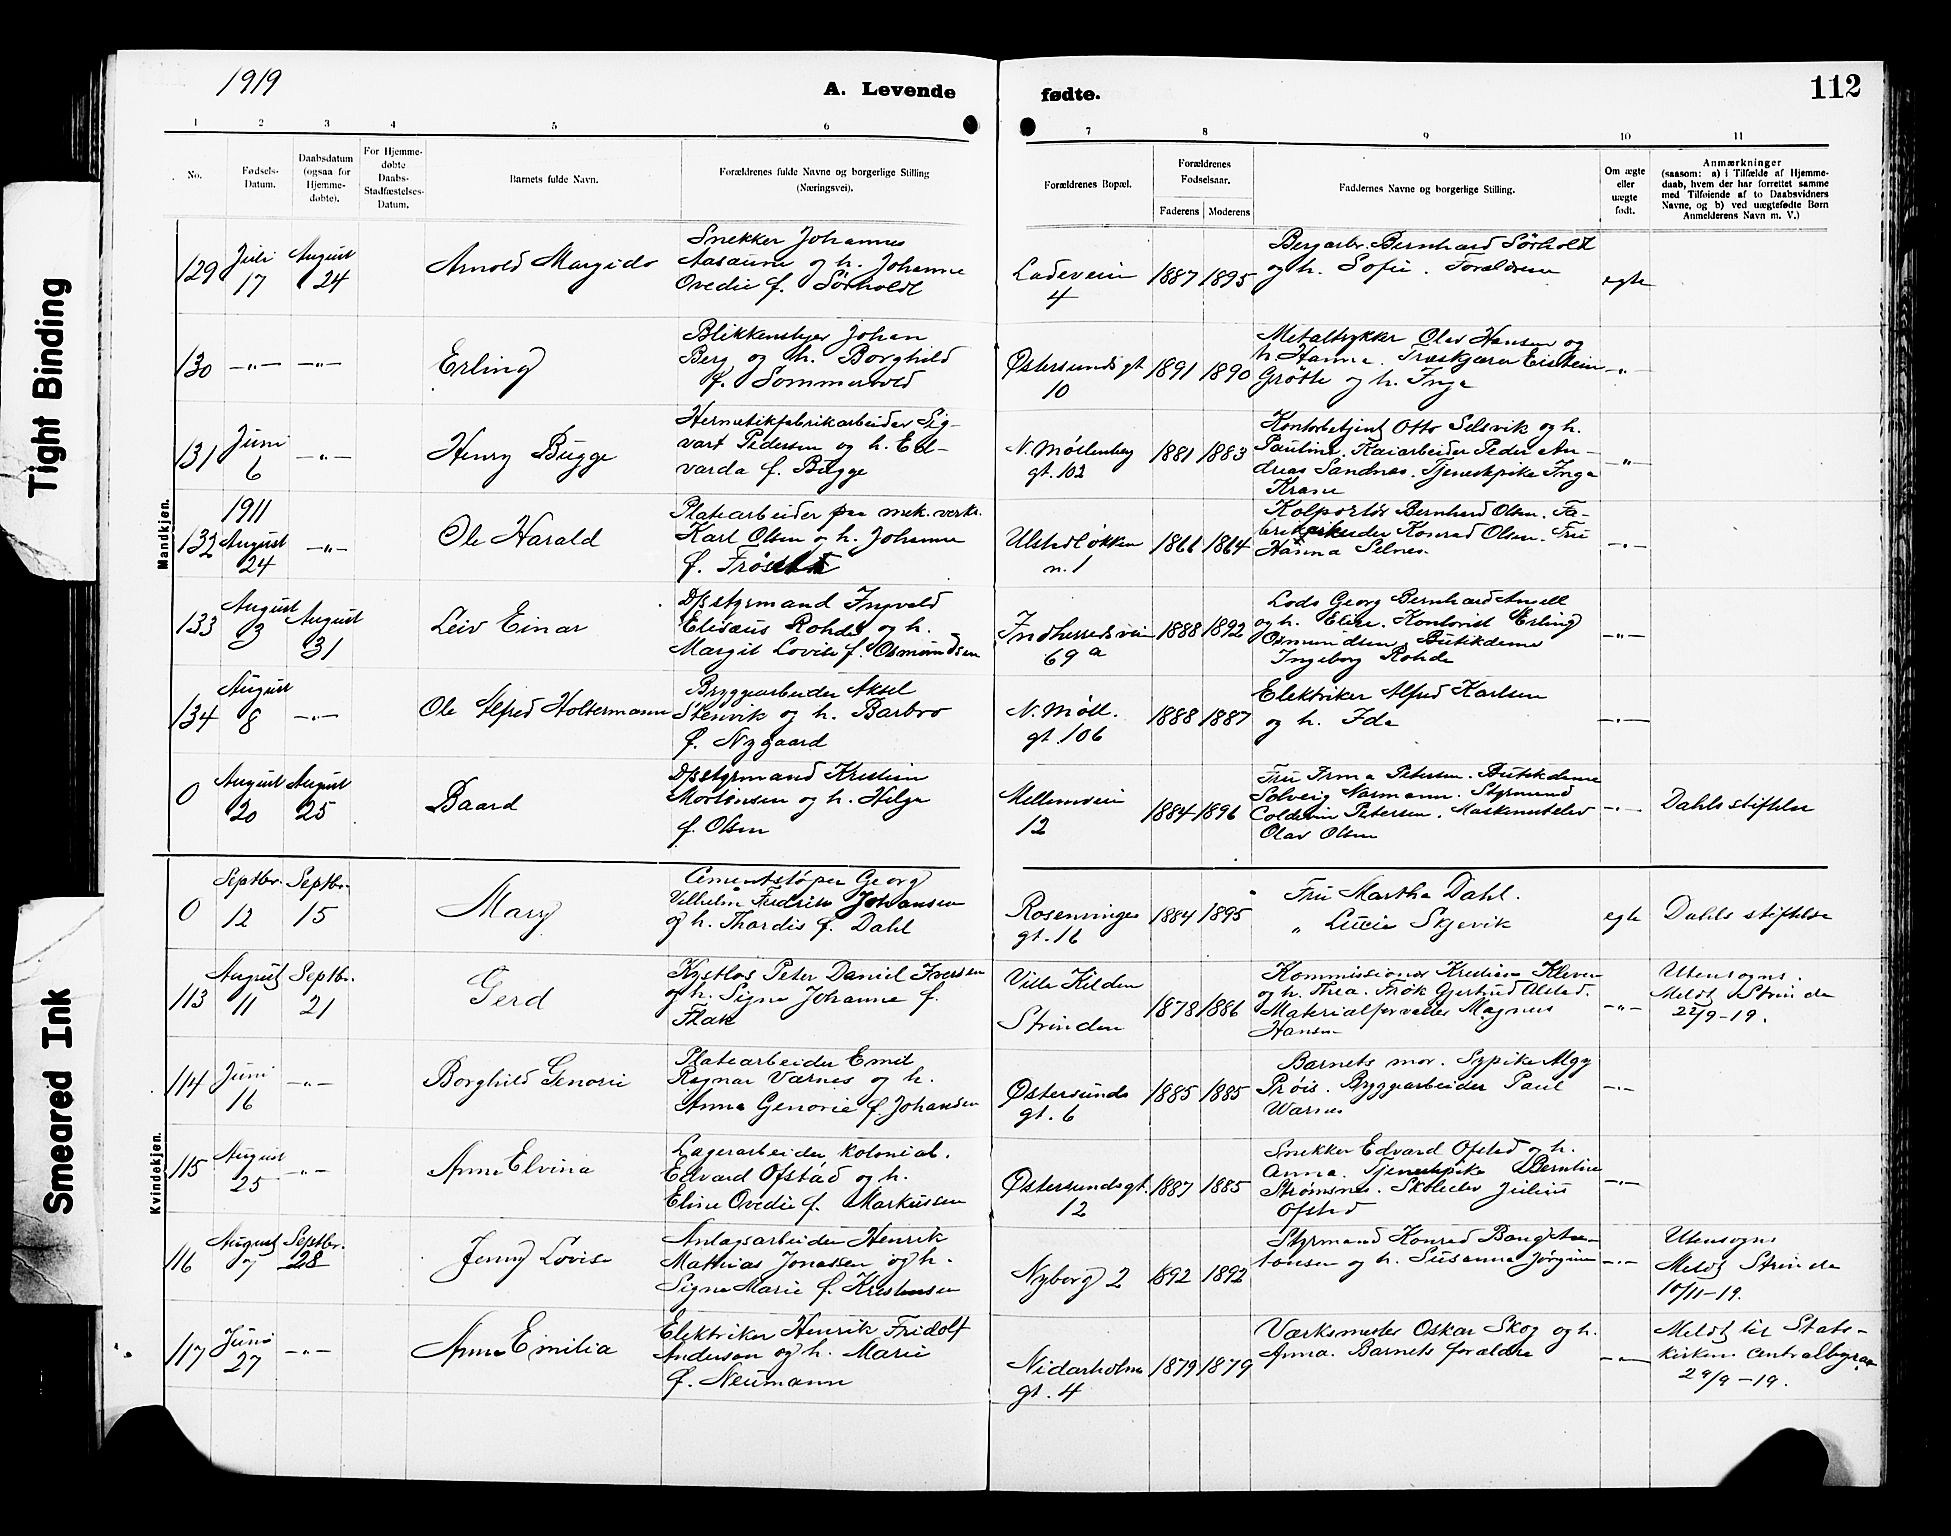 1919
A. Levende
fødte.
112
1 2 3 4 5 6 7 8 9 10 11
No.
Fødsels-
Datum.
Daabsdatum
(ogsaa for
Hjemme-
døbte).
For Hjemme-
døbte
Daabs-
Stadfæstelses-
Datum.
Barnets fulde Navn.
Forældrenes fulde Navne og borgerlige Stilling
(Næringsvei).
Forældrenes Bopæl.
Forældrenes
Fødselsaar.
Faderens Moderens
Faddernes Navne og borgerlige Stilling.
Om ægte
eller
uægte
født.
Anmærkninger
(saasom: a) i Tilfælde af Hjemme-
daab, hvem der har forrettet samme
med Tilføiende af to Daabsvidners
Navne, og b) ved uægtefødte Børn
Anmelderens Navn m. V.)
Mandkjøn.
129
Juli
17
August
24
Arnold Margido
Snekker Johannes
Aasaune og h. Johanne
Ovedie f. Sørholdt
Ladeveien
4
1887 1895
Bergarb. Bernhard Sørholdt
og h. Sofie. Forældrene
egte
130
—„— —„—
Erling
Blikkenslager Johan
Berg og h. Borghild
f. Sommervold
Østersundsgt
10
1891 1890
Metaltrykker Olav Hansen og
h. Hanna. Træskjærer Eistein
Grøtte og h. Inga
—„—
131
Juni
6
—„—
Henry Bugge
Hermetikfabrikarbeider Sig-
vart Pedersen og h. Ed-
varda f. Bugge
N. Møllenberg
gt. 102
1881 1883
Kontorbetjent Otto Selsvik og h.
Pauline. Kaiarbeider Peder An-
dreas Sandnes. Tjenestpike Inga
Krane
—„—
132
1911
August
24
—„—
Ole Harald
Platearbeider paa mek. verks.
Karl Olsen og h. Johanna
f.
Ulstadløkken
n. 1
1861 1864
Kolportør Bernhard Olsen. Fa-
brikarbeider Konrad Olsen. Fru
Hanna Selnes.
—„—
133
August
3
August
31
Leiv Einar
D/Sstyrmand Ingvald
Eliseus Rohde og h.
Margit Lovise f. Osmundsen
Indherredsvei
69 a
1888 1892
Lods Georg Bernhard Ansell
og h. Elise. Kontorist Erling
Osmundsen. Butikdame
Ingeborg Rohde
—„—
134
August
8
—„—
Ole Alfred Holtermann
Bryggearbeider Aksel
Stenvik og h. Barbro
f. Nygaard
N. Møll.
gt. 106
1888 1887
Elektriker Alfred Karlsen
og h. Ida
—„—
0
August
20
August
25
Baard
D/Sstyrmand Kristian
Mortensen og h. Helga
f. Olsen
Mellemveien
12
1884 1896
Fru Irma Petersen. Butikdame
Solveig Normann. Styrmand
Petersen. Maskinistelev
Olav Olsen
—„—
Dahls stiftelse
Kvindekjøn.
0
Septbr.
12
Septbr.
15
Mary
Cementstøper Georg
Vilhelm Fredrik Johansen
og h. Thordis f. Dahl
Rosenvinges
gt. 16
1884 1895
Fru Martha Dahl.
„ Lucie Skjevik
egte
Dahls stiftelse
113
August
11
Septbr.
21
Gerd
Kystlos Peter Daniel Iversen
og h. Signe Johanne f.
Flak
Villa Kilden
Strinden
1878 1886
Kommissionær Kristian Kleven
og h. Thea. Frøk Gjertrud Alstad.
Materialforvalter Magnus
Hansen
—„—
Utensogns.
Meldt Strinda
22/9-19.
114
Juni
16
—„—
Borghild Genorie
Platearbeider Emil
Ragnar Værnes og h.
Anna Genorie f. Johansen
Østersunds
gt. 6
1885 1885
Barnets mor. Sypike Algy
Prøis. Bryggearbeider Paul
Warnes
—„—
115
August
25
—„—
Anna Elvina
Lagerarbeider kolonial.
Edvard Ofstad og h.
Eline Ovedie f. Markussen
Østersundsgt.
12
1887 1885
Snekker Edvard Ofstad og h.
Anna. Tjenestpike Berntine
Strømsnes. Skoleelev Julius
Ofstad
—„—
116
August
7
Septbr.
28
Jenny Lovise
Anlagsarbeider Henrik
Mathias Jonassen og h.
Signe Marie f. Kristensen
Nyborg 2
1892 1892
Styrmand Konrad Bang An-
tonsen og h. Susanna Jørgine
—„—
Utensogns
Meldt Strinda
10/11-19.
117
Juni
27
—„—
Anna Emilia
Elektriker Henrik Fridolf
Anderson og h. Marie
f. Neumann
Nidarholms
gt. 4
1879 1879
Værksmester Oskar Skog og h.
Anna. Barnets forældre
—„—
Meldt til Stats-
kirkens centralbyraa
29/9-19.
Tight Binding
Smeared Ink